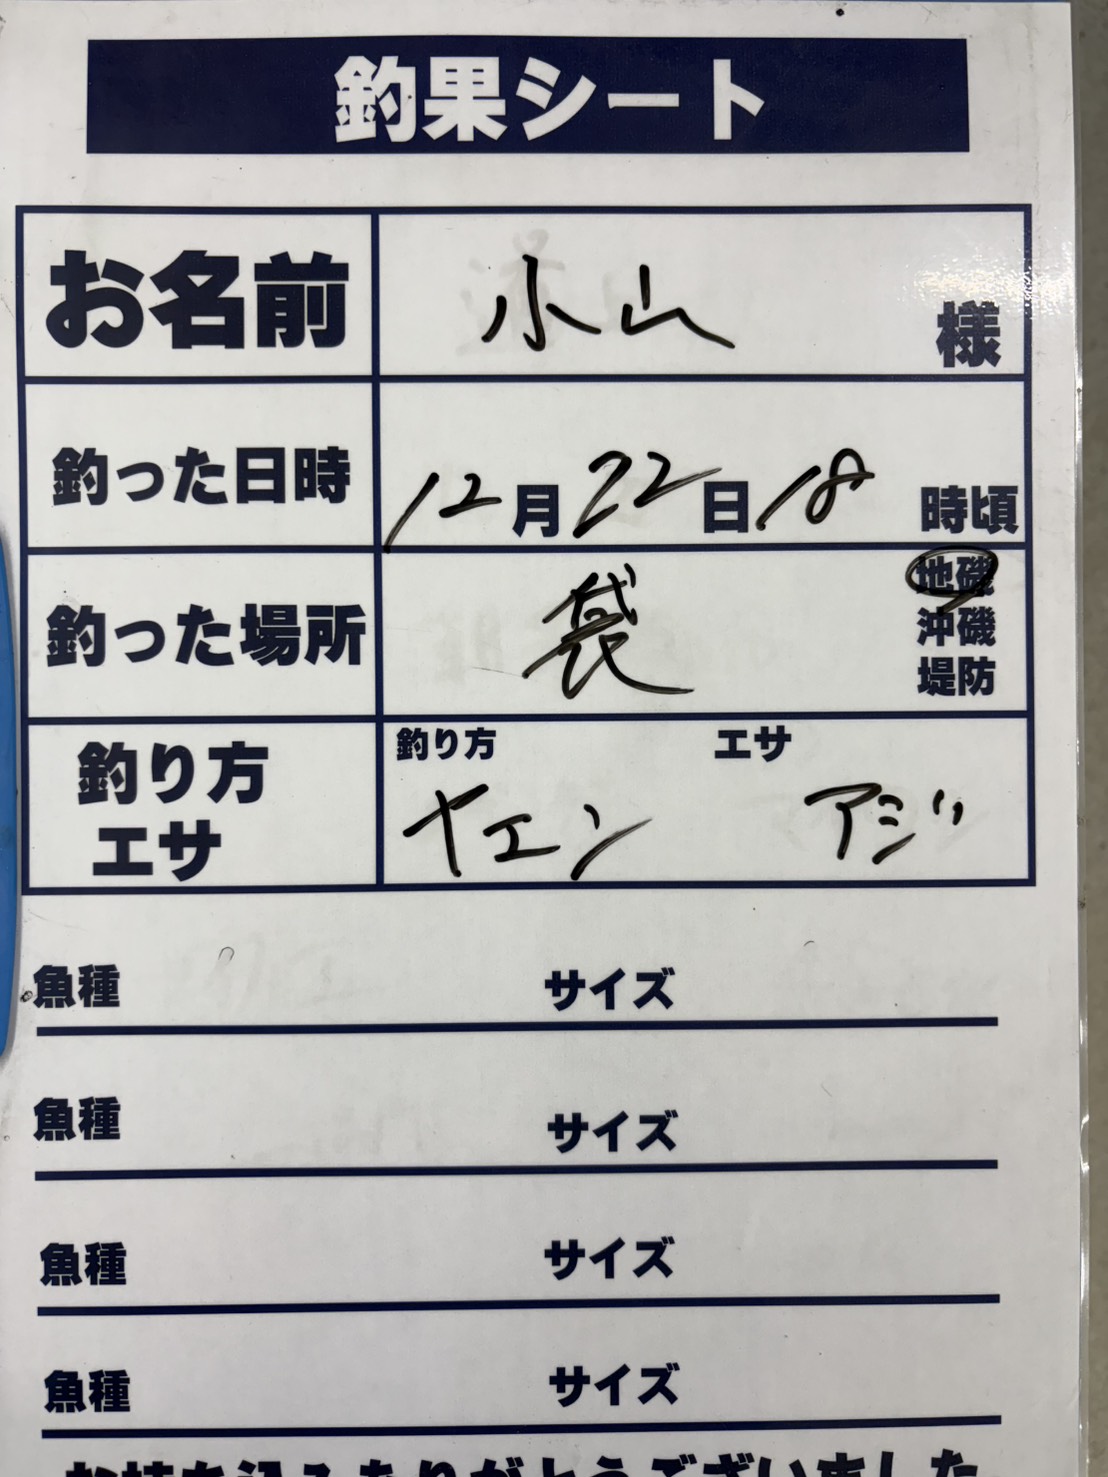 釣果シート
お名前 小山 様
釣った日時 12月22日18時頃
釣った場所 袋 地磯
沖磯
堤防
釣り方 エサ
釣り方
エサ
ヤエン アジ
魚種 サイズ
魚種 サイズ
魚種 サイズ
魚種 サイズ
お持ち込みありがとうございました